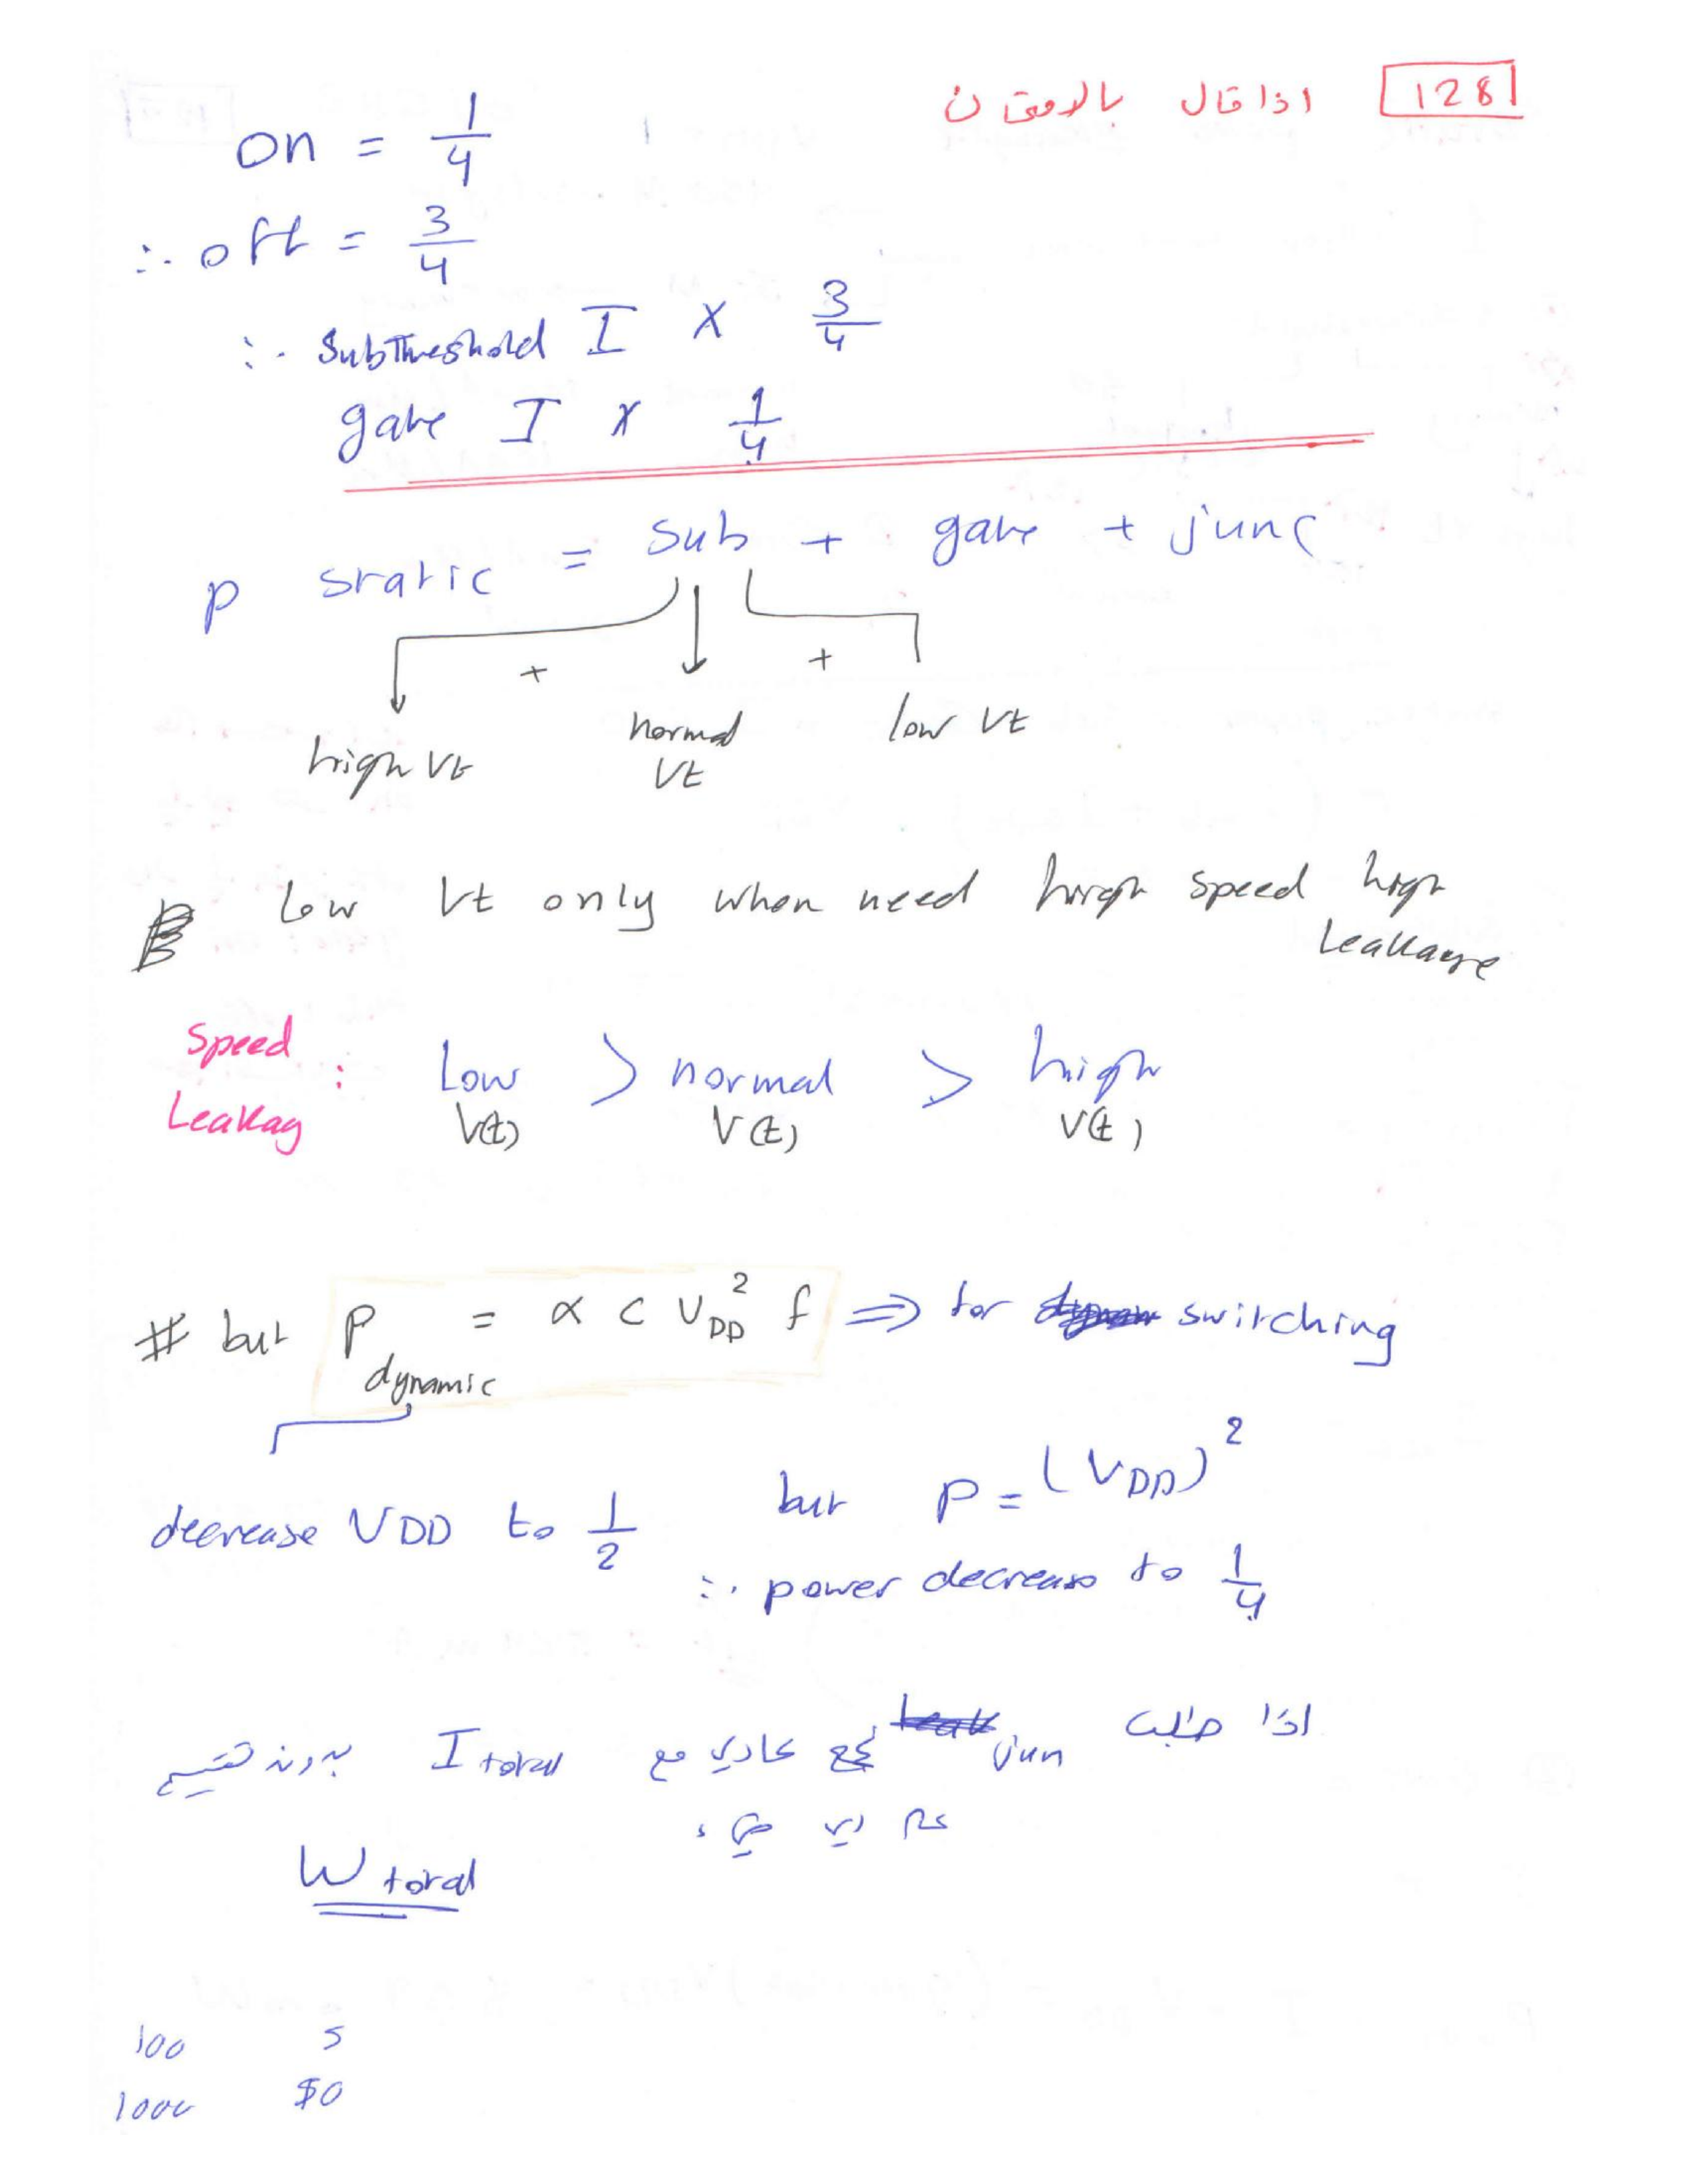 128 اذا قال بالامتحان
on = 1/4
∴ off = 3/4
∴ Subthreshold I X 3/4
gate I X 1/4
P static = Sub + gate + junc
high Vt + normal Vt + low Vt
Low Vt only when need high speed high Leakage
Speed Leakag : Low V(t) > normal V(t) > high V(t)
# but P dynamic = α C V_DD² f ⇒ for switching
decrease VDD to 1/2 but P = (V_DD)²
∴ power decrease to 1/4
اذا طلبت jun عادي مع I total بدون تقسيم
W total
100 5
1000 $0